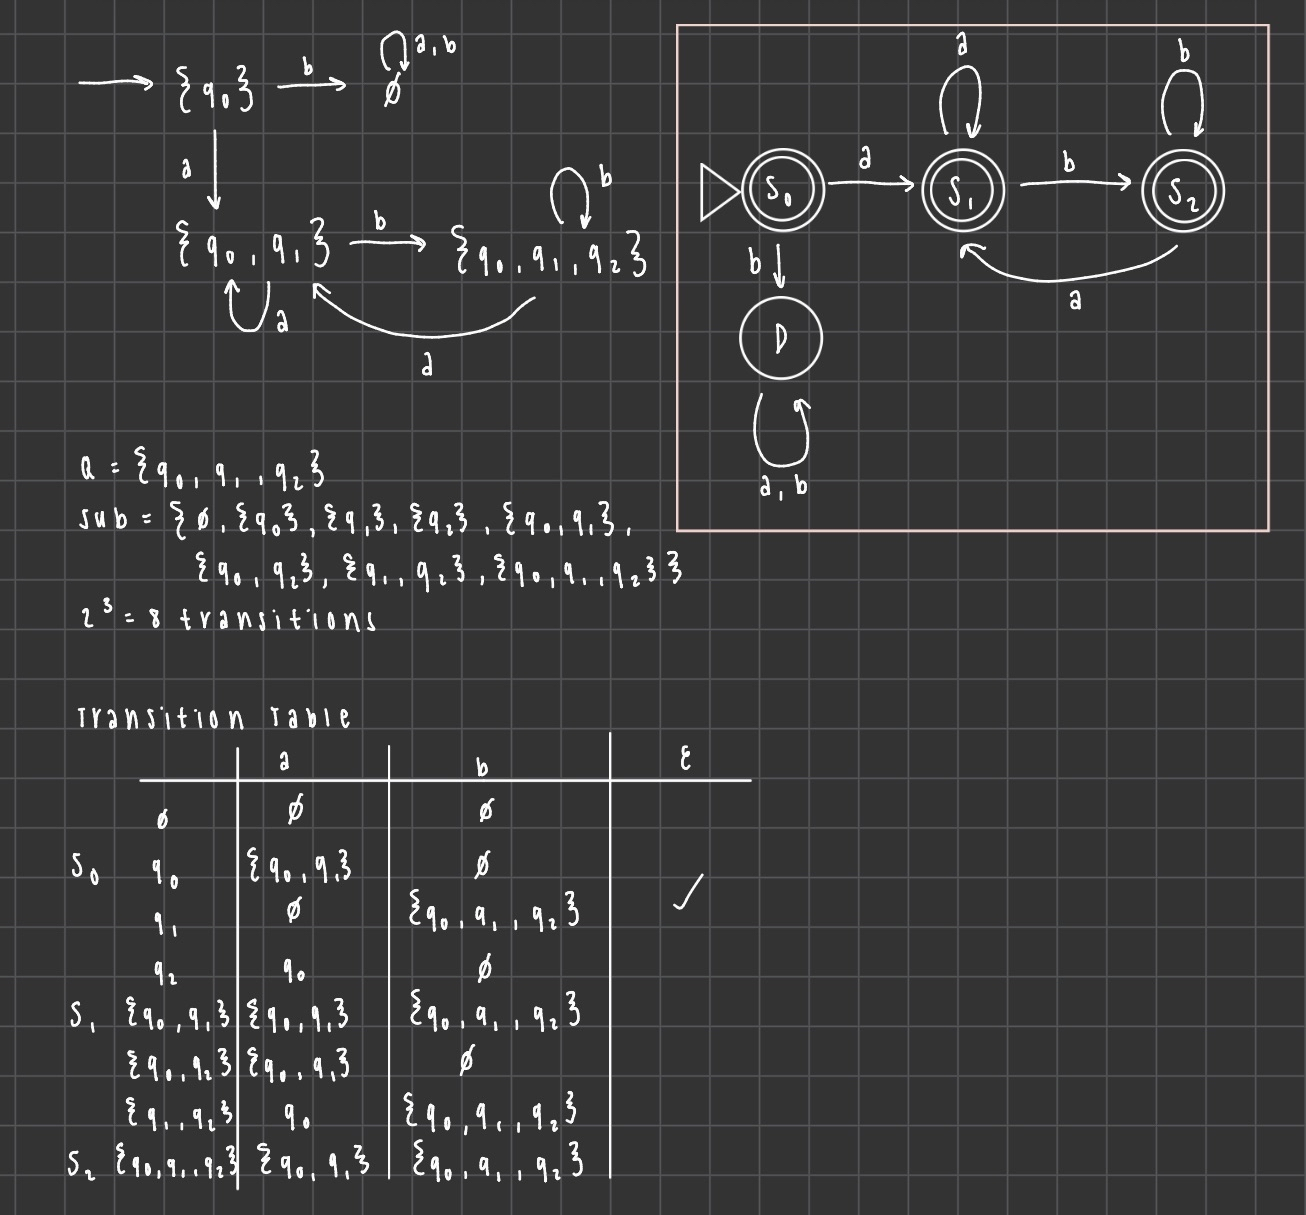 {q₀} b ∅ a, b
a
{q₀, q₁} b {q₀, q₁, q₂} b
a
a
Q = {q₀, q₁, q₂}
sub = {∅, {q₀}, {q₁}, {q₂}, {q₀, q₁},
{q₀, q₂}, {q₁, q₂}, {q₀, q₁, q₂}}
2³ = 8 transitions
a b
S₀ a S₁ b S₂
b a
D
a, b
Transition Table
a b ε
∅ ∅ ∅
S₀ q₀ {q₀, q₁} ∅ ✓
q₁ ∅ {q₀, q₁, q₂}
q₂ q₀ ∅
S₁ {q₀, q₁} {q₀, q₁} {q₀, q₁, q₂}
{q₀, q₂} {q₀, q₁} ∅
{q₁, q₂} q₀ {q₀, q₁, q₂}
S₂ {q₀, q₁, q₂} {q₀, q₁} {q₀, q₁, q₂}